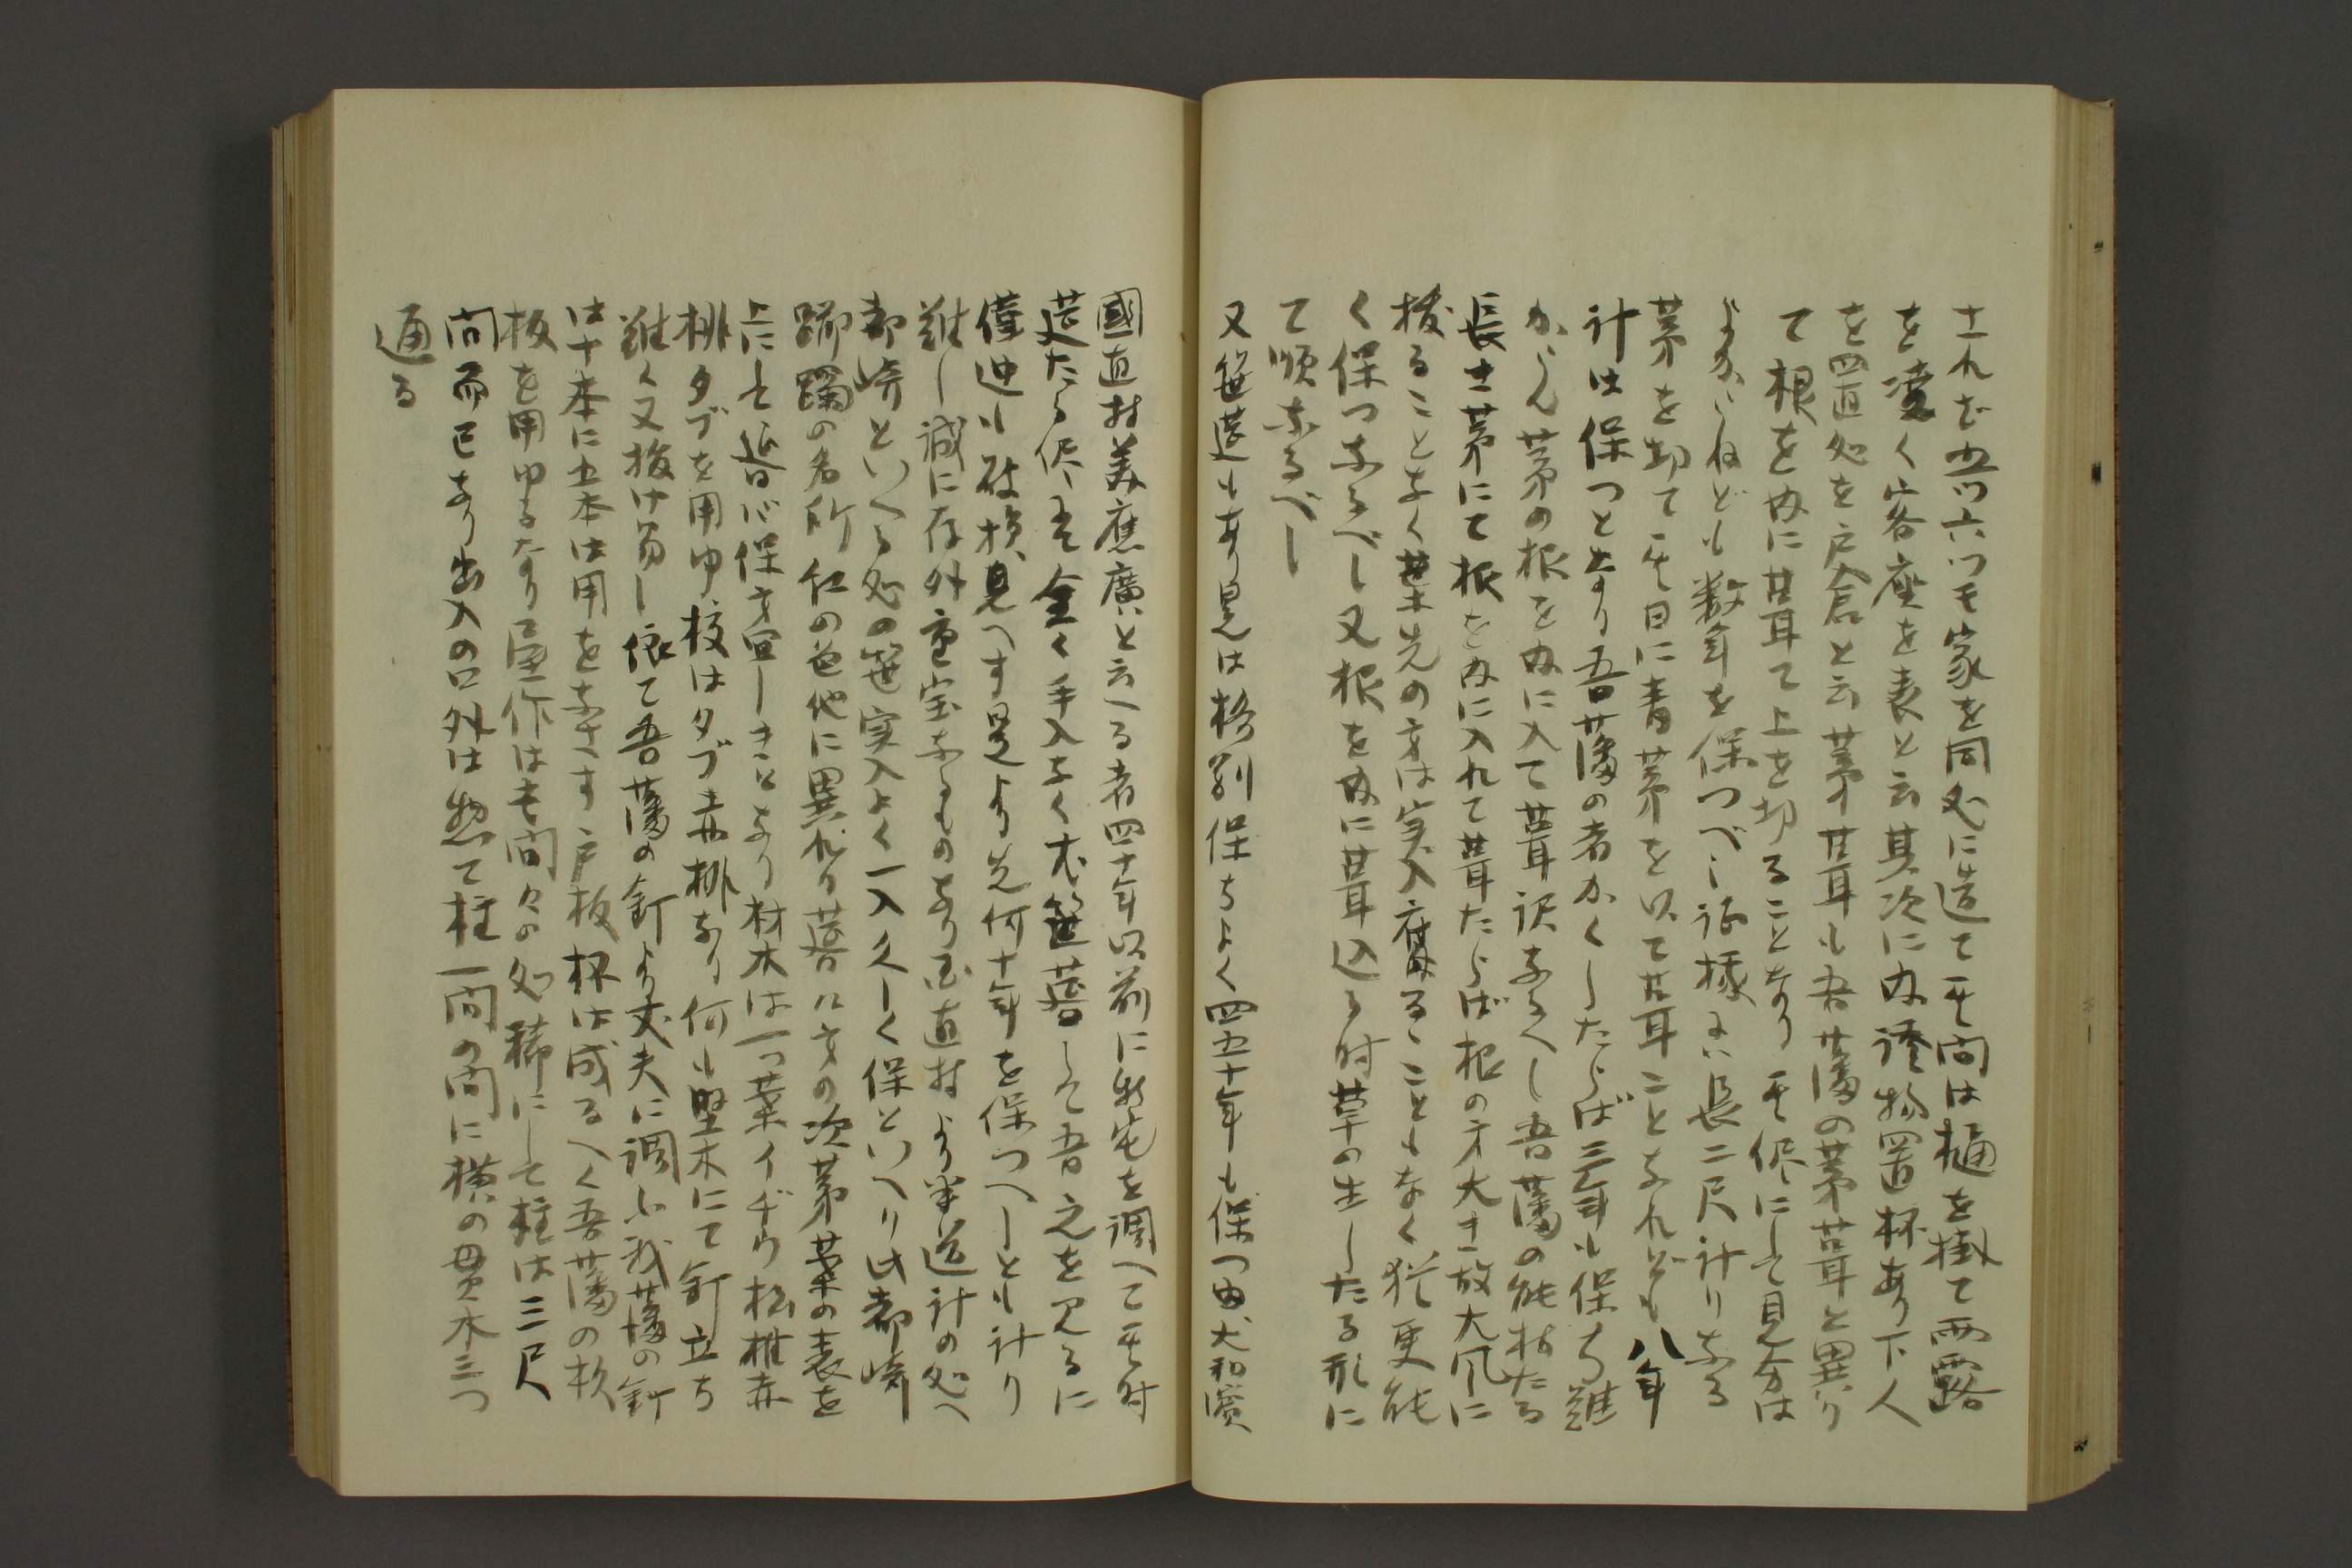 されど五ツ六ツモ家を同処に造て其間は樋を掛て雨露
を凌く客座を表と云其次に内諸物置杯あり下人
を置処を戸倉と云茅葺も吾藩の茅葺と異り
て根を内に葺て上を切ることなり其侭にして見分は
よからねども数年を保つべし証様ハ長二尺計りなる
茅を切て其日に青茅を以て葺ことなれども八年
計は保つとなり吾藩の者かくしたらば三年も保ち難
からん茅の根を内に入て葺訳なるへし吾藩の能枯たる
長き茅にて根を内に入れて葺たらば根の方大き故大風に
損ることなく葉先の方は実入腐るゝこともなく猶更能
く保つなるべし又根を内に葺込る時草の生したる形に
て順なるべし
又笹葺もあり是は格別保ちよく四五十年も保つ由大和濱
國直村美應廣と云へる者四十年以前に出宅を調へて其時
葺たる侭ニて全く手入なく尤笹葺して吾之を見るに
僅迚も破損見へす是より先何十年を保つへしとも計り
難し誠に存外重宝なるものなり国直村より半道計の処へ
都崎といへる処の笹実入よく一入久しく保といへり此都崎
躑躅の名所紅の色他に異れり葺ハ方の次第葉の表を
上にして葺ハ保方宜しきことなり材木は一つ葉イヂウ松椎赤
桃タブを用ゆ板はタブ赤桃なり何も堅木にて釘立ち
難く又抜け易し依て吾藩の釘より丈夫に調ふ我藩の釘
は十本に五本は用をなさす戸板杯は成るへく吾藩の杉
板を用ゆるなり屋作はも間々の処稀にして柱は三尺
間而已なり出入の口外は惣て柱一間の間に横の貫木三つ
通る